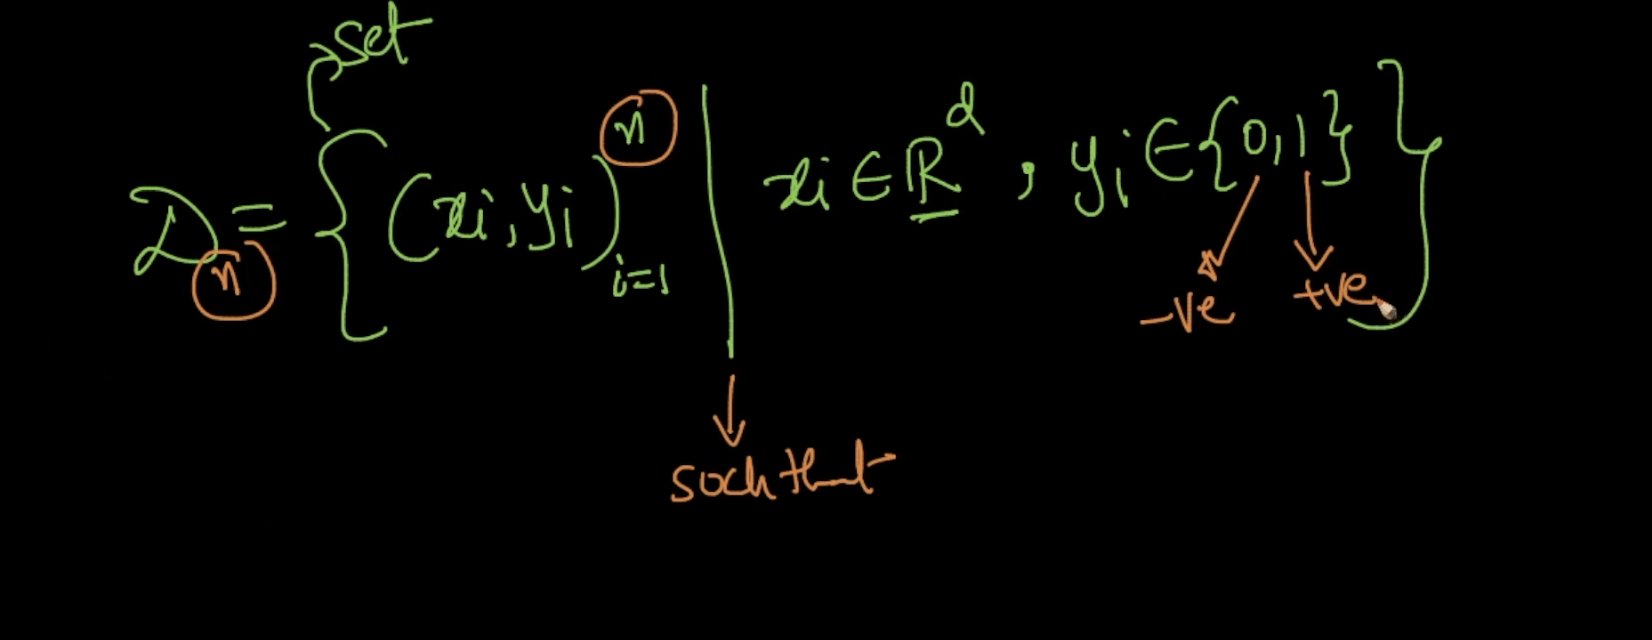 set
Dₙ = { (xi, yi)ⁿᵢ₌₁ | xi ∈ ℝᵈ, yi ∈ {0,1} }
-ve +ve
such that